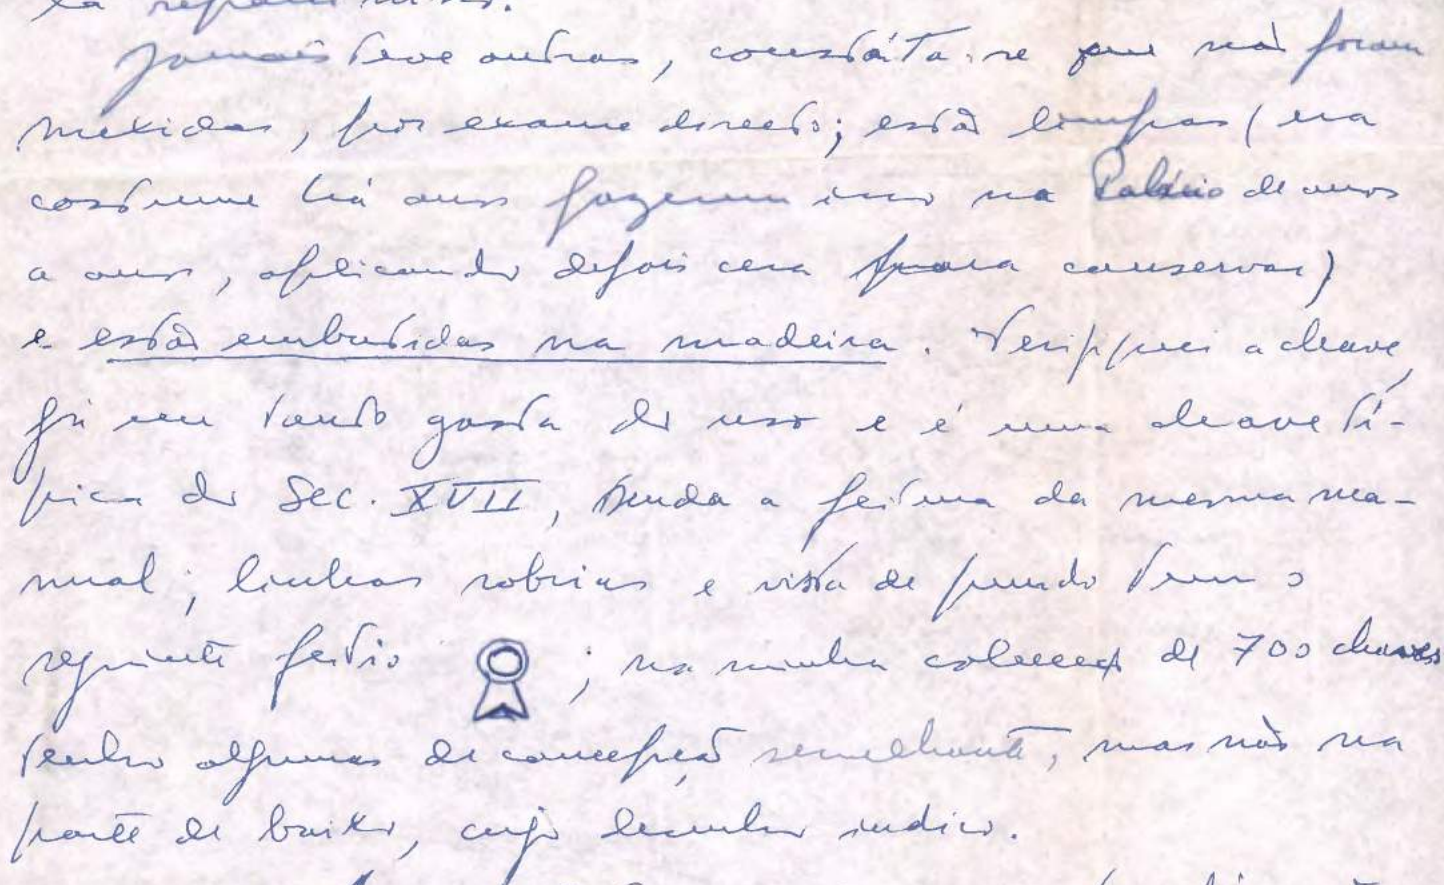 jamais teve outras, constáta-se que não foram
mexidas, por exame directo; estão limpas (era
costume há anos fazerem isso no Palácio de anos
a anos, aplicando depois cera para conservar)
e estão embutidas na madeira. Verifiquei a chave,
já um tanto gasta do uso e é uma chave tí-
pica do Sec. XVII, sendo a feitura da mesma ma-
nual; linhas sobrias e vista de fundo tem o
seguinte feitio ; na minha colecção de 700 chaves
tenho algumas de concepção semelhante, mas não na
parte de baixo, cujo desenho indico.